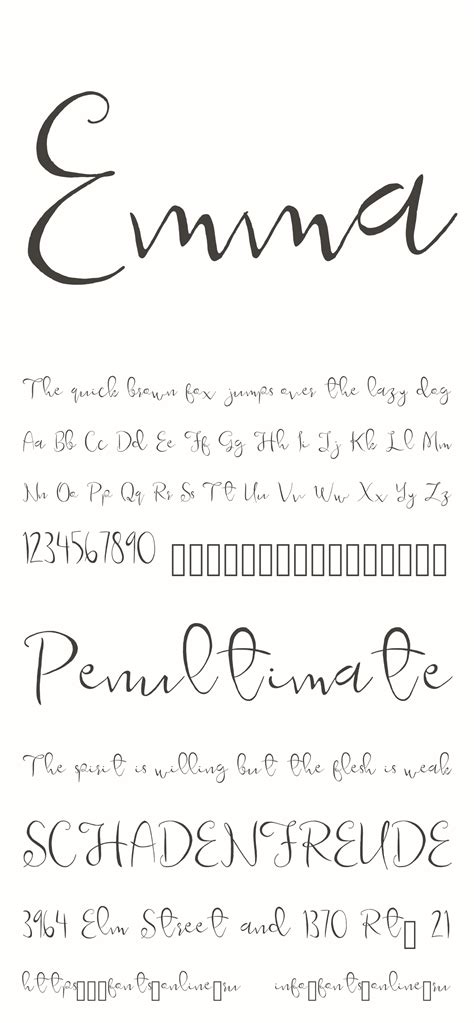 Emma
The quick brown fox jumps over the lazy dog
Aa Bb Cc Dd Ee Ff Gg Hh Ii Jj Kk Ll Mm
Nn Oo Pp Qq Rr Ss Tt Uu Vv Ww Xx Yy Zz
1234567890 □□□□□□□□□□□□□□□□
Penultimate
The spirit is willing but the flesh is weak
SCHADENFREUDE
3964 Elm Street and 1370 Rt□ 21
https□□□fonts□online□ru info□fonts□online□ru